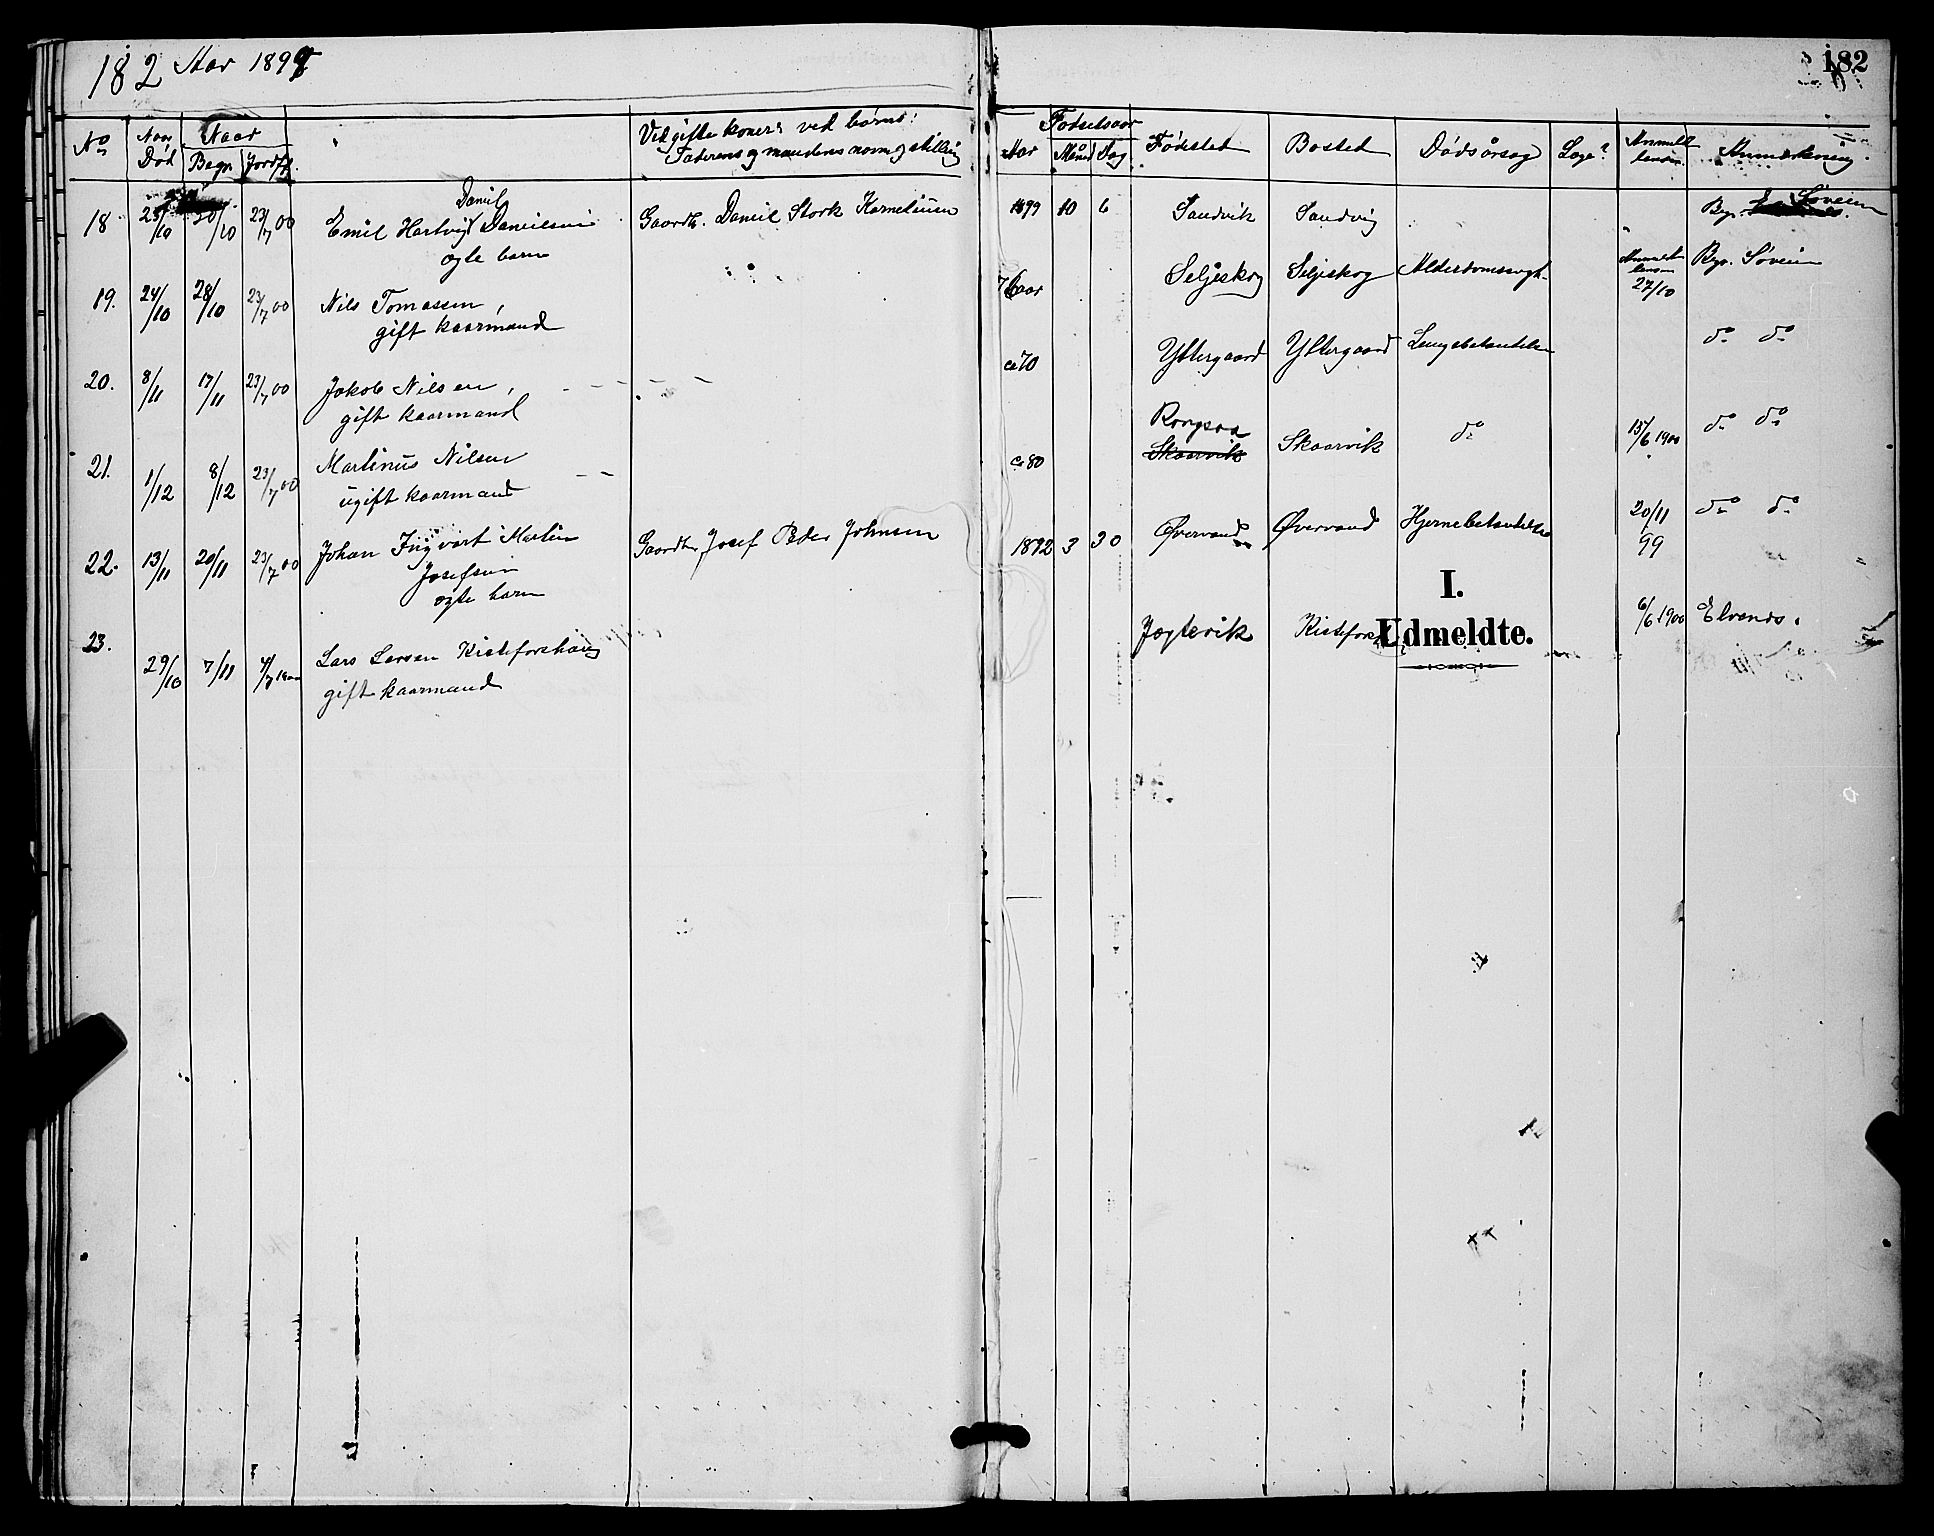 182 Aar 1899
182
No
Naar Død
Naar
Begr. Jordf.
Ved gifte koner & ved børns:
Faderens og mandens navn og stilling
Fødselsaar
Aar Måned Dag
Fødested
Bosted
Dødsårsag
Læge?
Anmeldelsen
Anmærkning
18 23/10 30/10 23/7 00 Emil Hartvig Daniel Danielsen Gaardbr. Daniel Stork Kornelius 1899 10 6 Sandvik Sandvig Byr. Søveien
ægte barn
19. 24/10 28/10 23/7 00 Nils Tomassen, 76 aar Seljeskog Seljeskog Alderdomssvagh. Anmeldelsen 27/10 Byr. Søveien
gift kaarmand
20. 8/11 17/11 23/7 00 Jakob Nilsen, ca 70 Yttergaard Yttergaard Lungebetændelse do do
gift kaarmand
21. 1/12 8/12 23/7 00 Martinus Nilsen ca 80 Skaarvik Skaarvik do 15/6 1900 do do
ugift kaarmand
22. 13/11 20/11 23/7 00 Johan Ingvart Martin Gaardbr Josef Peder Johnsen 1892 3 30 Øvervand Øvervand Hjernebetændelse 20/11 99 do do
Josefsen
ægte barn
I.
Udmeldte.
23. 29/10 7/11 1900 Lars Larsen Kisteforshaug Jegtevik 6/6 1900 Elvenes.
gift kaarmand